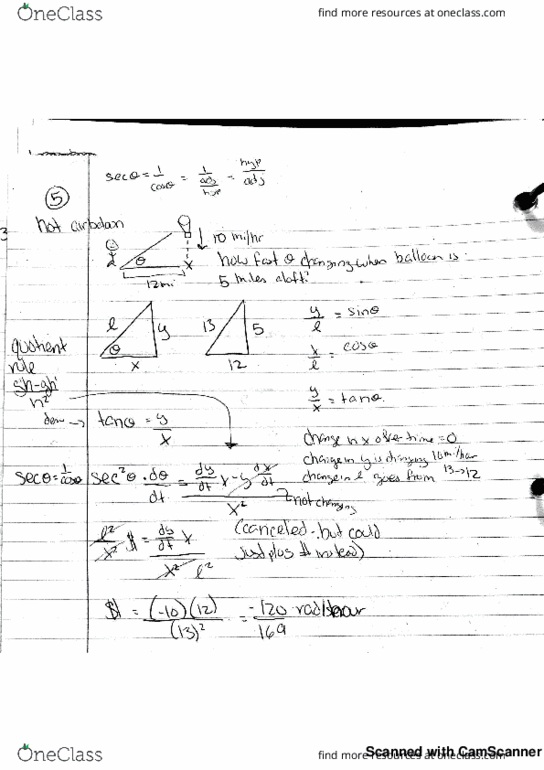 OneClass
find more resources at oneclass.com
secθ = 1/cosθ = 1/(adj/hyp) = hyp/adj
⑤
3
10 mi/hr
how fast θ changing when balloon is
5 miles aloft?
θ
x
12mi
l y θ x
13 5 12
y/l = sinθ
x/l = cosθ
y/x = tanθ.
quotient
rule
h²
tanθ = y/x
change in x over time = 0
change in y is changing 10 mi/hour
change in l goes from 13→12
secθ = 1/cosθ
sec²θ · dθ/dt = (dy/dt x - y dx/dt)/x²
not changing
l²/x² = dy/dt x / x² l²
(canceled - but could
just plug # instead)
= (-10)(12)/(13)² = -120/169 rad/hour
OneClass
find more resources at oneclass.com
Scanned with CamScanner